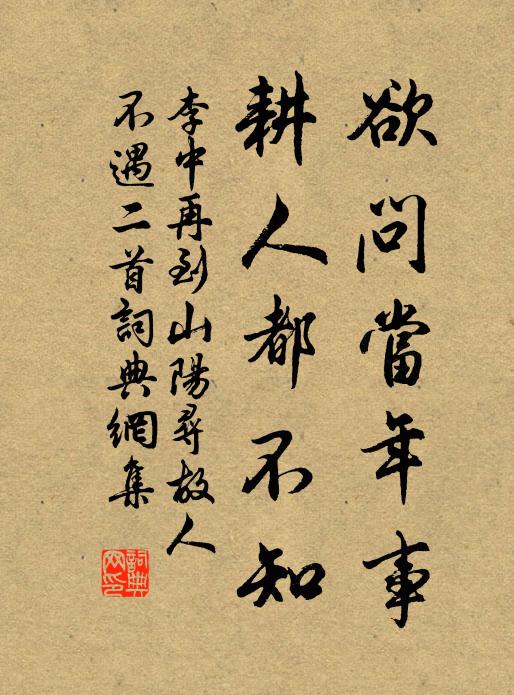 欲問當年事
耕人都不知
李中再到山陽尋故人
不遇二首詞典網集
詞典網印